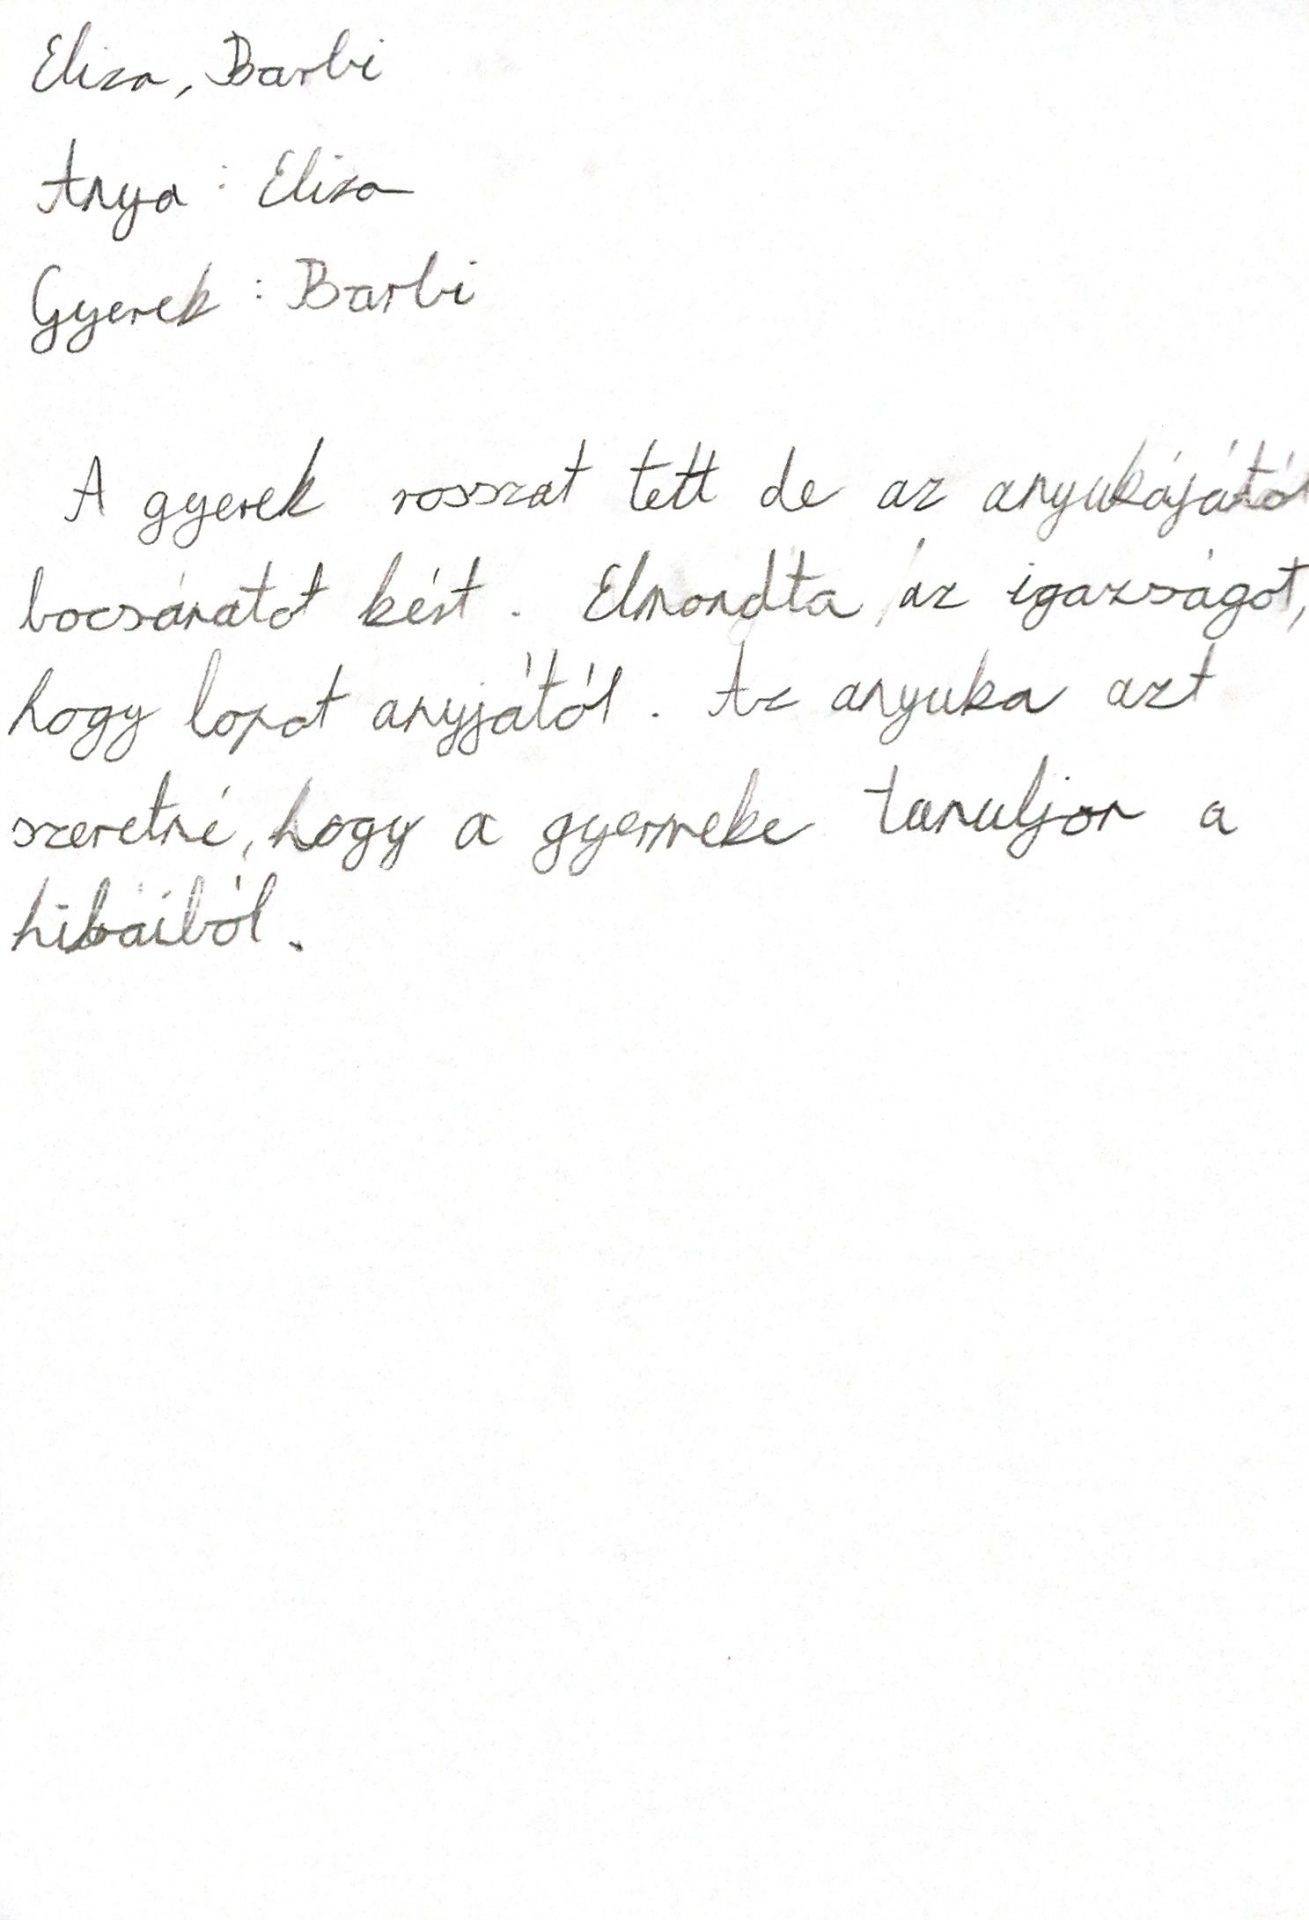 Eliza, Barbi
Anya : Eliza
Gyerek : Barbi
A gyerek rosszat tett de az anyukájától
bocsánatot kért. Elmondta az igazságot,
hogy lopot anyjától. Az anyuka azt
szeretné, hogy a gyermeke tanuljon a
hibáiból.